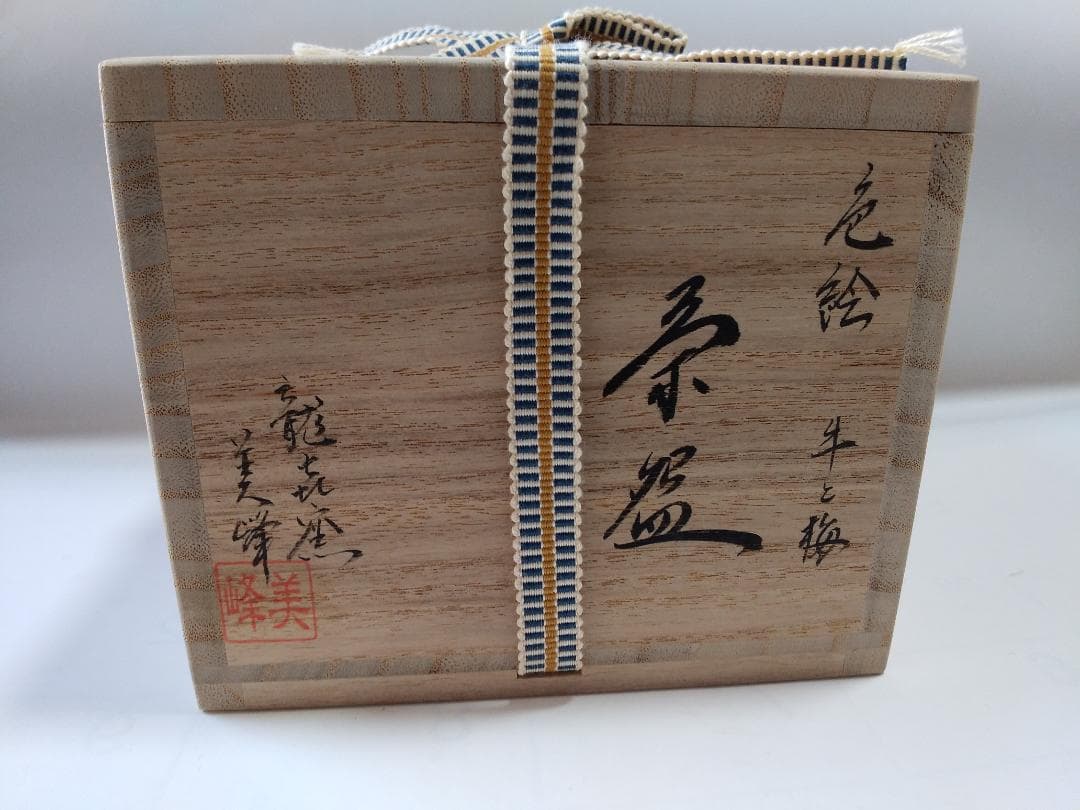 色絵 牛と梅
茶盌
龍㐂窯
美峰
美峰